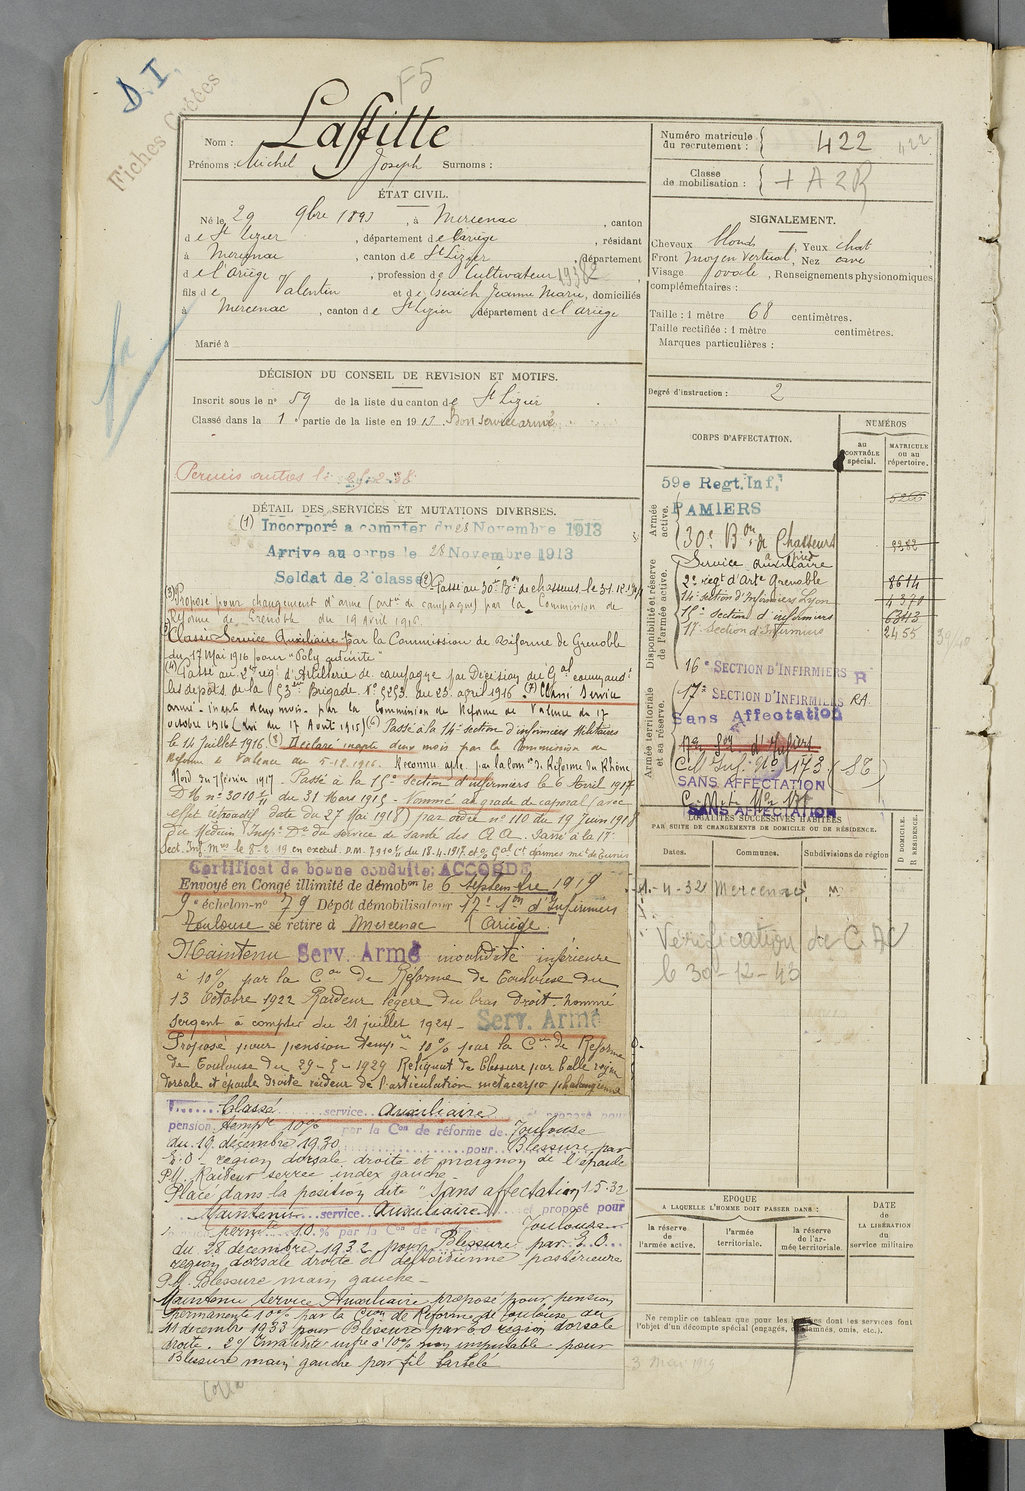 D.I.
Fiches Créées
F5
Nom : Laffitte
Prénoms : Michel Joseph Surnoms :
Numéro matricule du recrutement : 422 422
Classe de mobilisation : + A 2 R
ÉTAT CIVIL.
Né le 29 9bre 1893, à Mercenac, canton
de St Lizier, département de l'Ariège, résidant
à Mercenac, canton de St Lizier, département
de l'ariège, profession de Cultivateur 19382
fils de Valentin et de Jeanne Marie, domiciliés
à Mercenac, canton de St Lizier, département de l'ariège
Marié à
SIGNALEMENT.
Cheveux blonds, Yeux chat
Front moyen vertical, Nez cave
Visage ovale, Renseignements physionomiques
complémentaires :
Taille : 1 mètre 68 centimètres.
Taille rectifiée : 1 mètre centimètres.
Marques particulières :
Degré d'instruction : 2
DÉCISION DU CONSEIL DE REVISION ET MOTIFS.
Inscrit sous le n° 59 de la liste du canton de St Lizier
Classé dans la 1 partie de la liste en 1913. Bon service armé
Permis autos le 25-2-38
DÉTAIL DES SERVICES ET MUTATIONS DIVERSES.
(1) Incorporé a compter du 28 Novembre 1913
Arrive au corps le 28 Novembre 1913
Soldat de 2e classe (2) Passé au 30e Bon de chasseurs le 31.12.1914
(3) Proposé pour changement d'arme (artie de campagne) par la Commission de
Réforme de Grenoble du 19 Avril 1916
Classé Service Auxiliaire par la Commission de Réforme de Grenoble
du 17 Mai 1916 pour "Poly
(4) Passé au 2e régt d'Artillerie de campagne par Décision du Gal commandt
les dépôts de la 53e Brigade N° 5253 du 23 avril 1916. (7) Classé Service
armé - inapte deux mois - par la Commission de Réforme de Valence du 17
octobre 1916 (Loi du 17 Août 1915) (6) Passé à la 14e section d'infirmiers Militaires
le 14 Juillet 1916. (8) Déclaré inapte deux mois par la Commission de
Réforme de Valence du 5-12-1916. Reconnu apte par la Comon de Réforme du Rhône
Nord du 7 février 1917. Passé à la 15e Section d'infirmiers le 6 Avril 1917
DM n° 3010 du 31 Mars 1915 - Nommé au grade de caporal (avec
effet rétroactif date du 27 Mai 1918) par ordre n° 110 du 19 Juin 1918
du Médecin Insp. Dr du service de Santé des A A. Passé à la 17e
Sect. Inf. Mres le 8-2-19 en exécut. D.M. 7910 du 18-4-1917
Certificat de bonne conduite: ACCORDÉ
Envoyé en Congé illimité de démobon le 6 Septembre 1919
9e échelon n° 79 Dépôt démobilisateur 17e son d'Infirmiers
Toulouse se retire à Mercenac (Ariège.
Maintenu Serv. Armé invalidité inférieure
à 10% par la Con de Réforme de Toulouse du
13 Octobre 1922 Raideur légère du bras droit. Nommé
Sergent à compter du 21 juillet 1924 - Serv. Armé
Proposé pour pension tempre 10% par la Con de Réforme
de Toulouse du 29-5-1929 Reliquat de blessure par balle région
dorsale et épaule droite raideur de l'articulation métacarpo phalangienne
Classé service Auxiliaire et proposé pour
pension tempre 10% par la Con de réforme de Toulouse
du 19 décembre 1930 pour Blessure par
E.O. région dorsale droite et moignon de l'épaule
P.M. Raideur serrée index gauche
Placé dans la position dite "Sans affectation 1.5.32
Maintenu service Auxiliaire et proposé pour
permte 10 % par la Con de réforme Toulouse
du 28 décembre 1932 pour Blessure par E.O.
région dorsale droite et deltoïdienne postérieure
P.M. Blessure main gauche -
Maintenu Service Auxiliaire proposé pour pension
permanente 10% par la Con de Réforme de Toulouse du
11 décembre 1933 pour Blessure par E O région dorsale
droite. 2°/ Invalidité infre à 10% non imputable pour
Blessure main gauche par fil barbelé
CORPS D'AFFECTATION.
NUMÉROS
au CONTRÔLE spécial.
MATRICULE ou au répertoire.
Armée active.
59e Regt. Inf.
PAMIERS
30e Bon de Chasseurs à pied 9382
Disponibilité et réserve de l'armée active.
Service Auxiliaire
2e régt d'Artie Grenoble 8614
14e section d'Infirmiers Lyon 4370
15e Section d'infirmiers 6343
17e Section d'Infirmiers 2455
16e SECTION D'INFIRMIERS R
Armée territoriale et sa réserve.
17e SECTION D'INFIRMIERS RA
Sans Affectation
SANS AFFECTATION
SANS AFFECTATION
LOCALITÉS SUCCESSIVES HABITÉES
PAR SUITE DE CHANGEMENTS DE DOMICILE OU DE RÉSIDENCE.
Dates. Communes. Subdivisions de région
D DOMICILE. R RÉSIDENCE.
1-4-32 Mercenac
Vérification de CAC
le 30-12-43
EPOQUE
A LAQUELLE L'HOMME DOIT PASSER DANS :
la réserve de l'armée active.
l'armée territoriale.
la réserve de l'armée territoriale.
DATE de LA LIBÉRATION du service militaire
Ne remplir ce tableau que pour les hommes dont les services font
l'objet d'un décompte spécial (engagés, condamnés, omis, etc.).
F